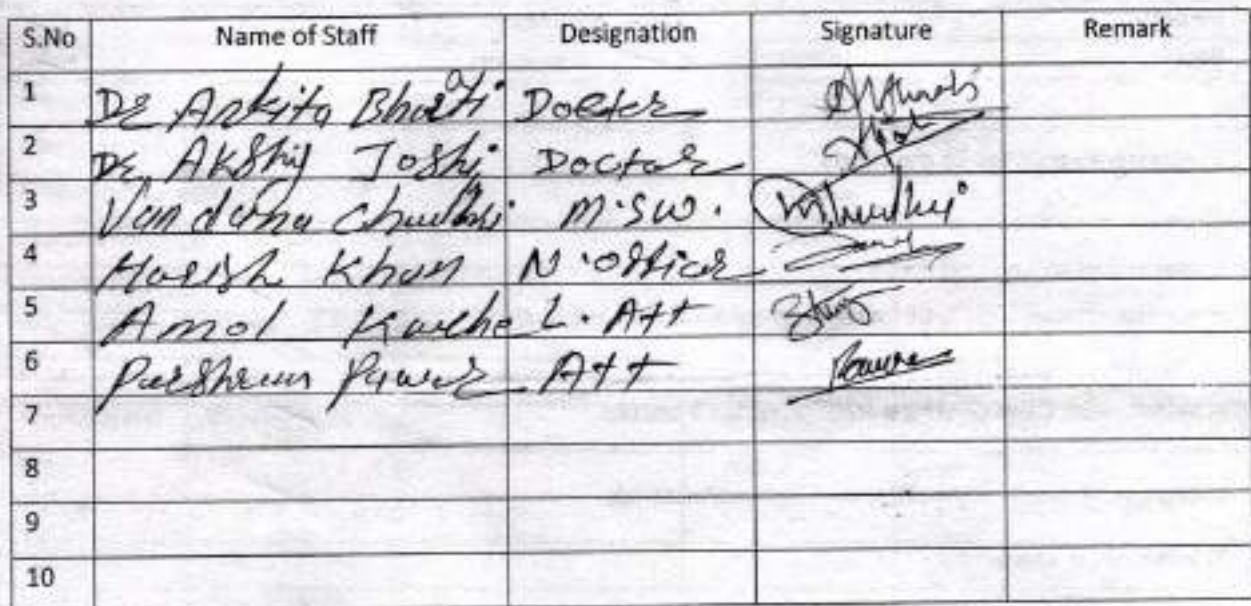 S.No Name of Staff Designation Signature Remark
1 Dr Ankita Bharti Doctor
2 Dr. Akshij Joshi Doctor
3 Vandana M.S.W.
4 Harish Khan N.Officer
5 Amol L. Att
6 Pawar Att
7
8
9
10